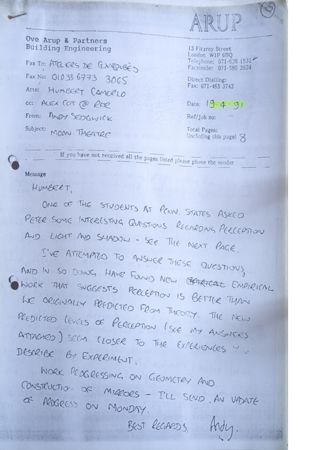 ARUP
Ove Arup & Partners
Building Engineering
13 Fitzroy Street
London W1P 6BQ
Telephone: 071-636 1531
Facsimile: 071-580 3924
Fax To: ATELIERS DE
Fax No: 01033 6773 3065
Direct Dialling:
Fax: 071-465 3742
Attn: HUMBERT CAMERLO
cc: ALEX @ RPR
Date: 19.4.91
From: ANDY SEDGWICK
Ref/Job no:
Subject: MOON THEATRE
Total Pages:
(including this page) 8
If you have not received all the pages listed please phone the sender
Message
HUMBERT,
ONE OF THE STUDENTS AT PENN. STATES ASKED
PETER SOME INTERESTING QUESTIONS REGARDING PERCEPTION
AND LIGHT AND SHADOW - SEE THE NEXT PAGE.
I'VE ATTEMPTED TO ANSWER THESE QUESTIONS,
AND IN SO DOING, HAVE FOUND NEW EMPIRICAL
WORK THAT SUGGESTS PERCEPTION IS BETTER THAN
WE ORIGINALLY PREDICTED FROM THEORY. THE NEW
PREDICTED LEVELS OF PERCEPTION (SEE MY ANSWERS
ATTACHED) SEEM CLOSER TO THE EXPERIENCES
DESCRIBE BY EXPERIMENT.
WORK PROGRESSING ON GEOMETRY AND
CONSTRUCTION OF MIRRORS - I'LL SEND AN UPDATE
OF PROGRESS ON MONDAY.
BEST REGARDS Andy.